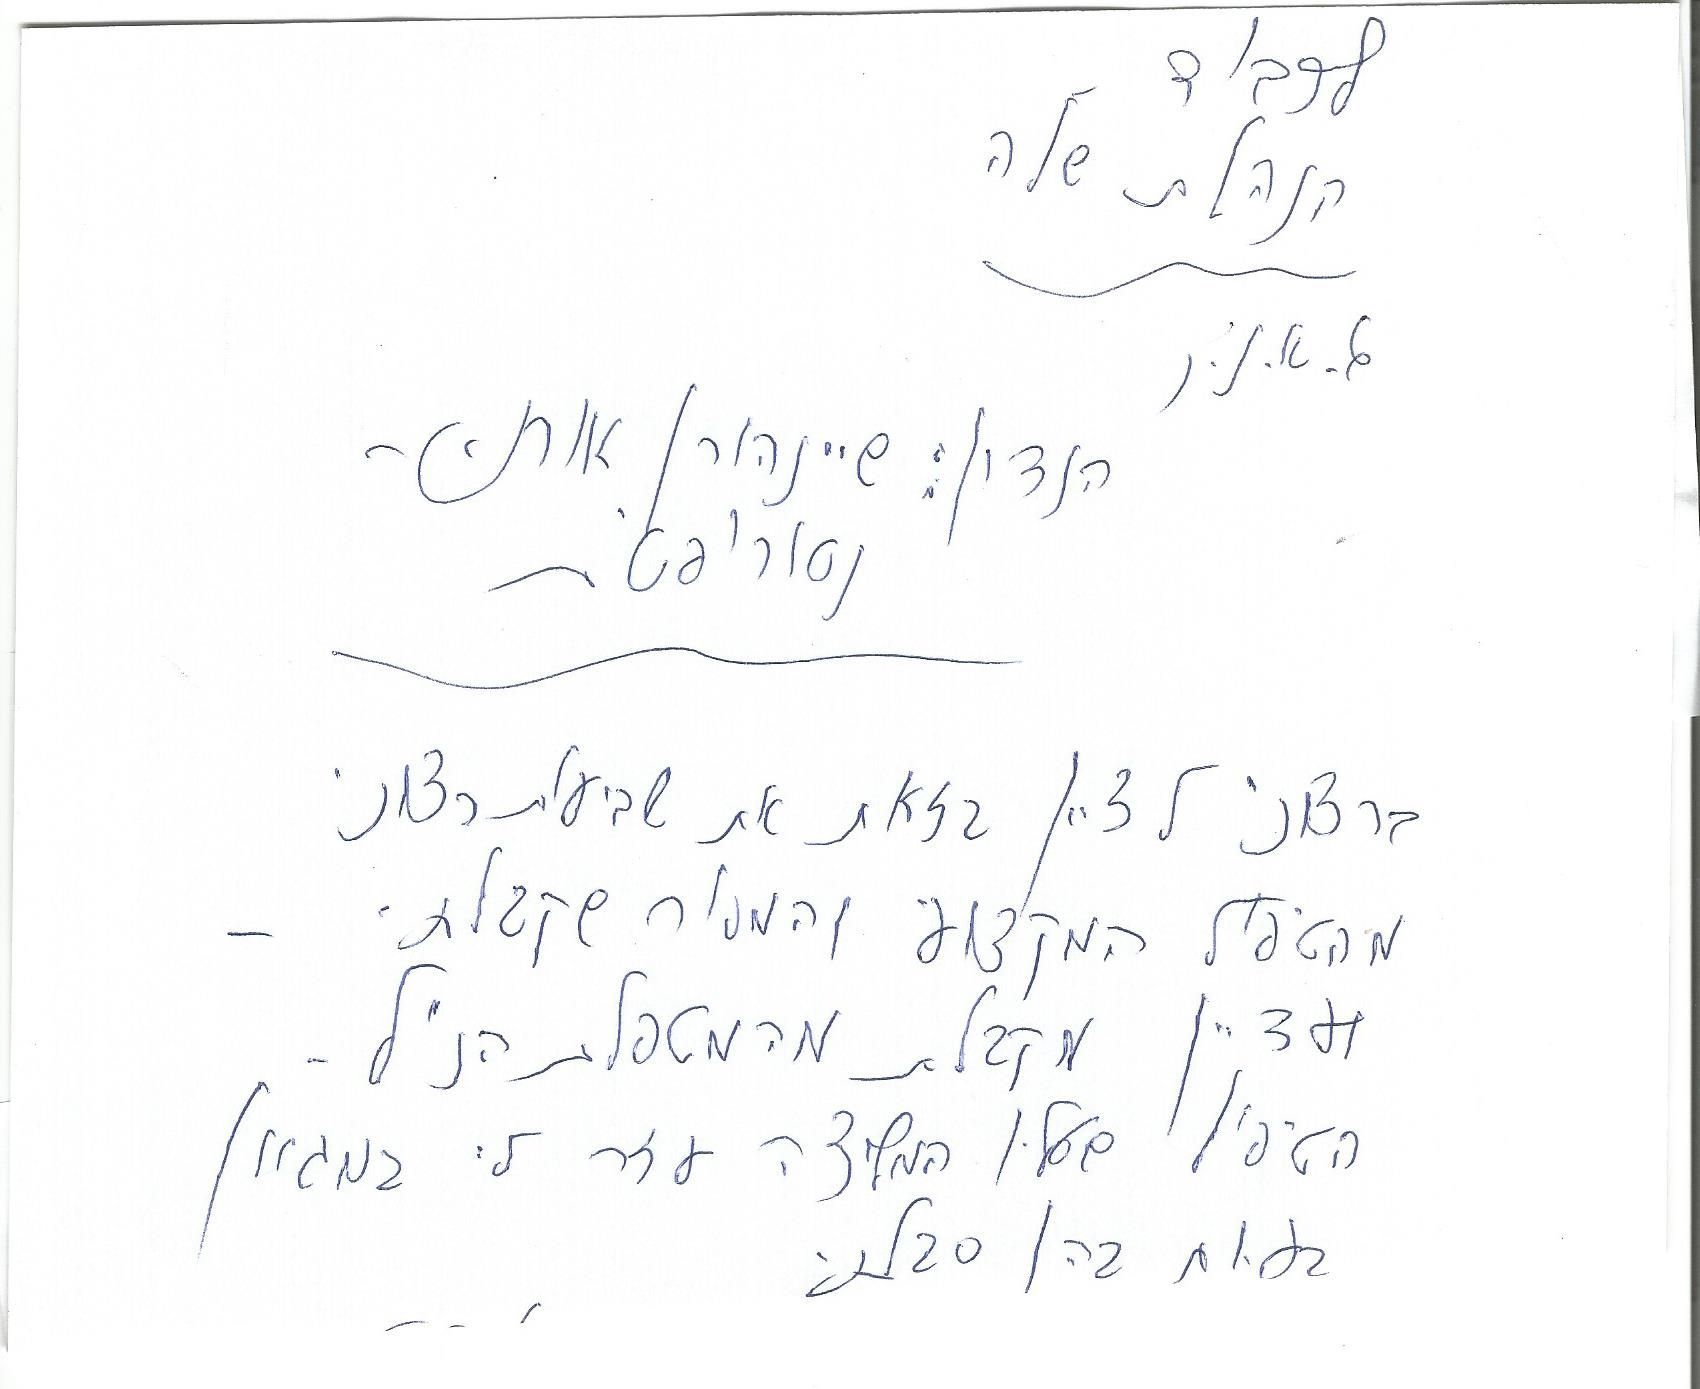 לדויד
הנהלת שלה
ג.א.נ.
הנדון: שיינהורן אורית -
נטורופטית
ברצוני לציין בזאת את שביעת רצוני
מהטיפול המקצועי והמסור שקבלתי -
ועדיין מקבלת מהמטפלת הנ"ל -
הטיפול עזר לי במגוון
בעיות בהן סבלתי